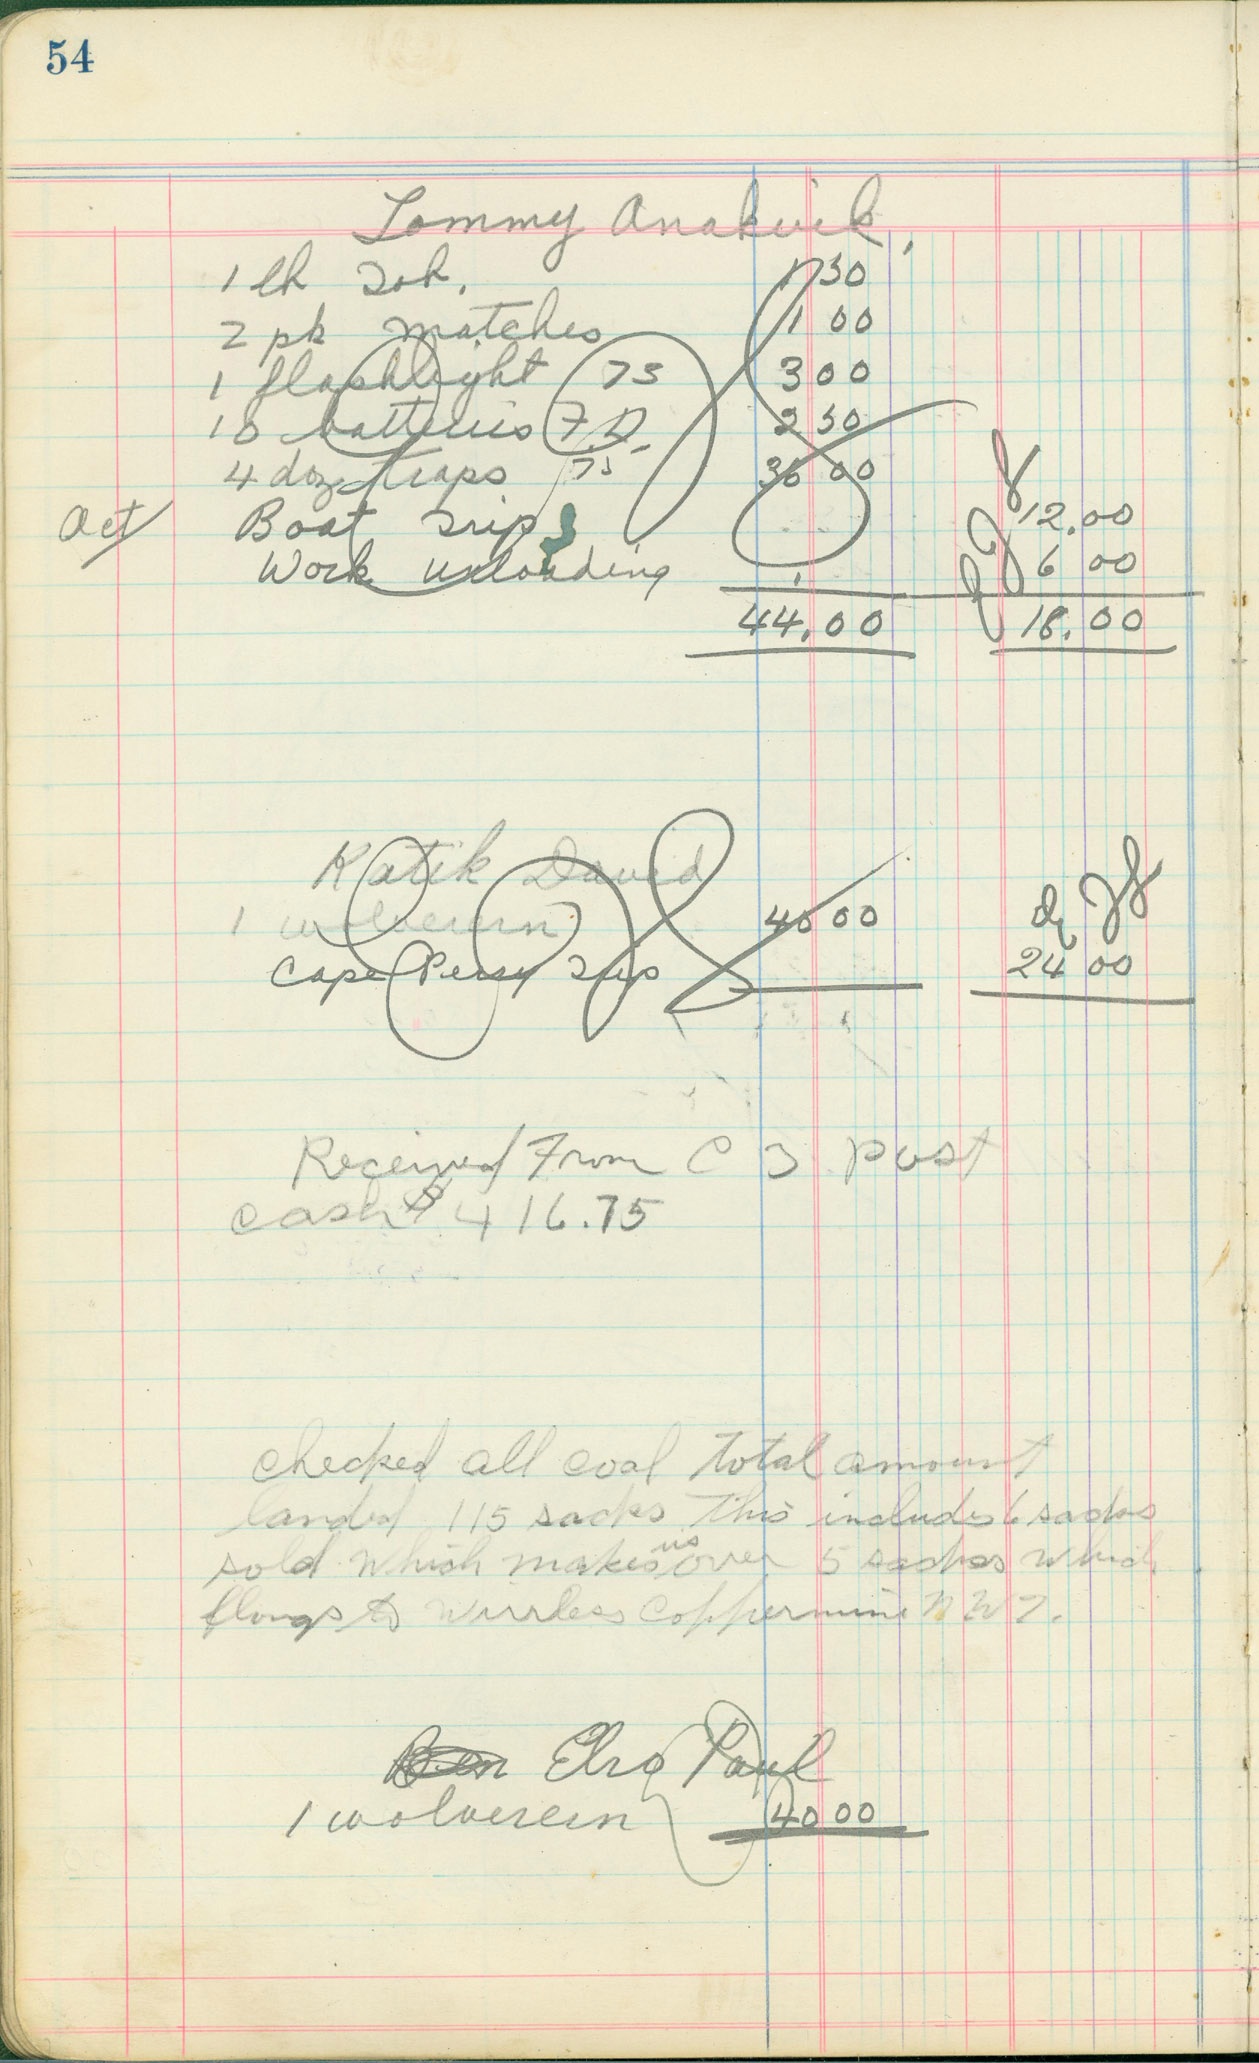 54
Tommy Anakvik.
1 lb Tob. 1 50
2 pk matches 1 00
1 flashlight 75 3 00
10 batteries F.D. 2 50
4 doz traps 75 36 00
Act Boat Trip 12.00
Work unloading 6 00
44.00 18.00
Katik David
1 wolverin 40 00
Cape Trip 24 00
Received From C B post
cash $ 416.75
checked all coal total amount
landed 115 sacks This includes 6 sacks
sold which makes us over 5 sackes which
blongs to Wirrless Coppermine N W T.
Paul
1 wolverein 40 00